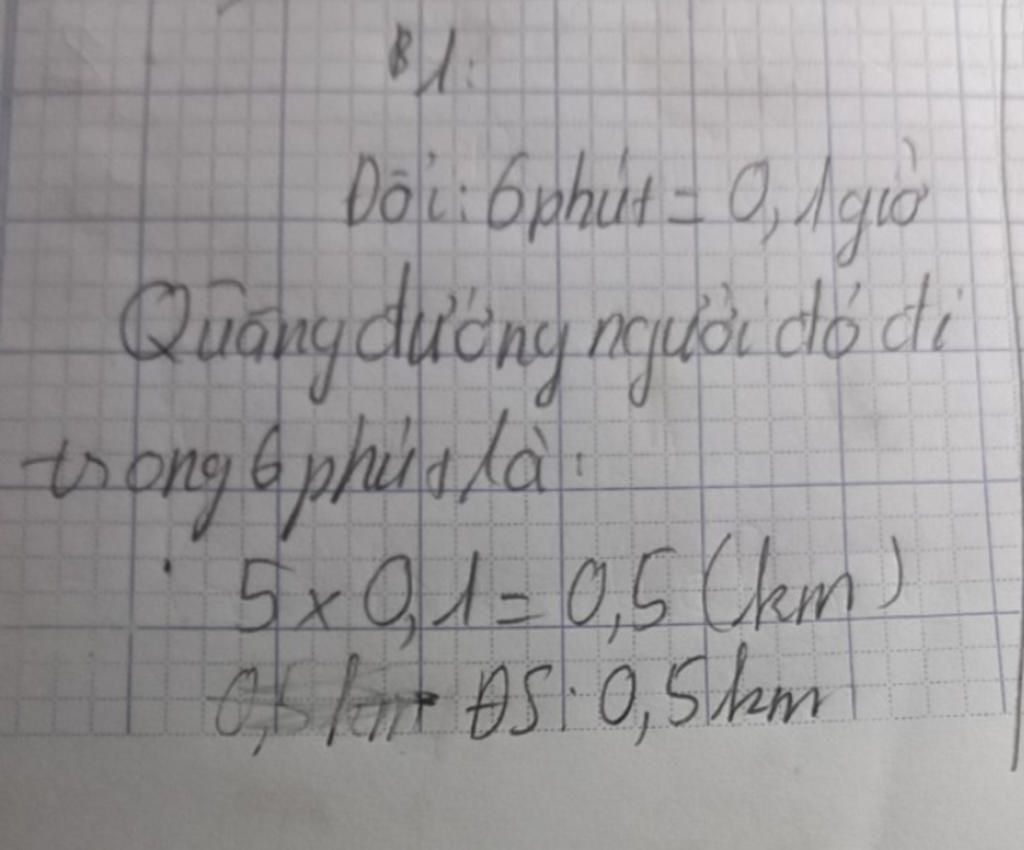 B1:
Đổi: 6 phút = 0,1 giờ
Quãng đường người đó đi
trong 6 phút là:
5 x 0,1 = 0,5 (km)
0,5 km ĐS: 0,5 km